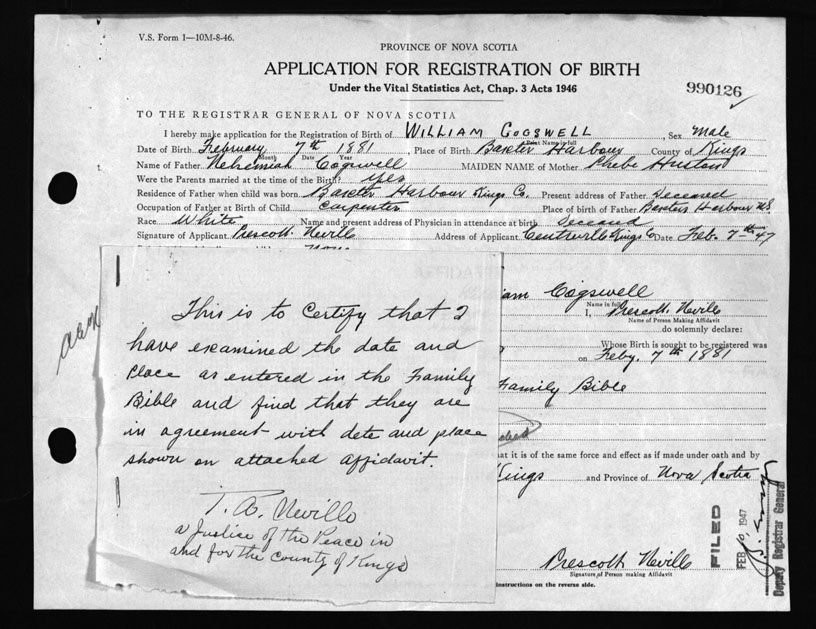 V.S. Form 1—10M-8-46.
PROVINCE OF NOVA SCOTIA
APPLICATION FOR REGISTRATION OF BIRTH
Under the Vital Statistics Act, Chap. 3 Acts 1946
990126
TO THE REGISTRAR GENERAL OF NOVA SCOTIA
I hereby make application for the Registration of Birth of WILLIAM COGSWELL, Sex Male
Print Name in full
Date of Birth February 7th 1881 Place of Birth Baxter Harbour County of Kings
Month Date Year
Name of Father Nehemiah Cogswell MAIDEN NAME of Mother Phebe Huston
Were the Parents married at the time of Birth? yes
Residence of Father when child was born Baxter Harbour Kings Co. Present address of Father Deceased
Occupation of Father at Birth of Child Carpenter Place of birth of Father Baxters Harbour N.S.
Race White Name and present address of Physician in attendance at birth
Signature of Applicant Prescott Nevill Address of Applicant Centreville Kings Co Date Feb. 7th 47
This is to Certify that I
have examined the date and
place as entered in the Family
Bible and find that they are
in agreement with date and place
shown on attached affidavit.
T. R. Neville
a Justice of the Peace in
and for the county of Kings
iam Cogswell
Name in full
I, Prescott Nevill
Name of Person Making Affidavit
do solemnly declare:
Whose Birth is sought to be registered was
on Feby. 7th 1881
Family Bible
at it is of the same force and effect as if made under oath and by
Kings and Province of Nova Scotia
Prescott Nevill
Signature of Person making Affidavit
nstructions on the reverse side.
FILED
FEB 10 1947
Deputy Registrar General